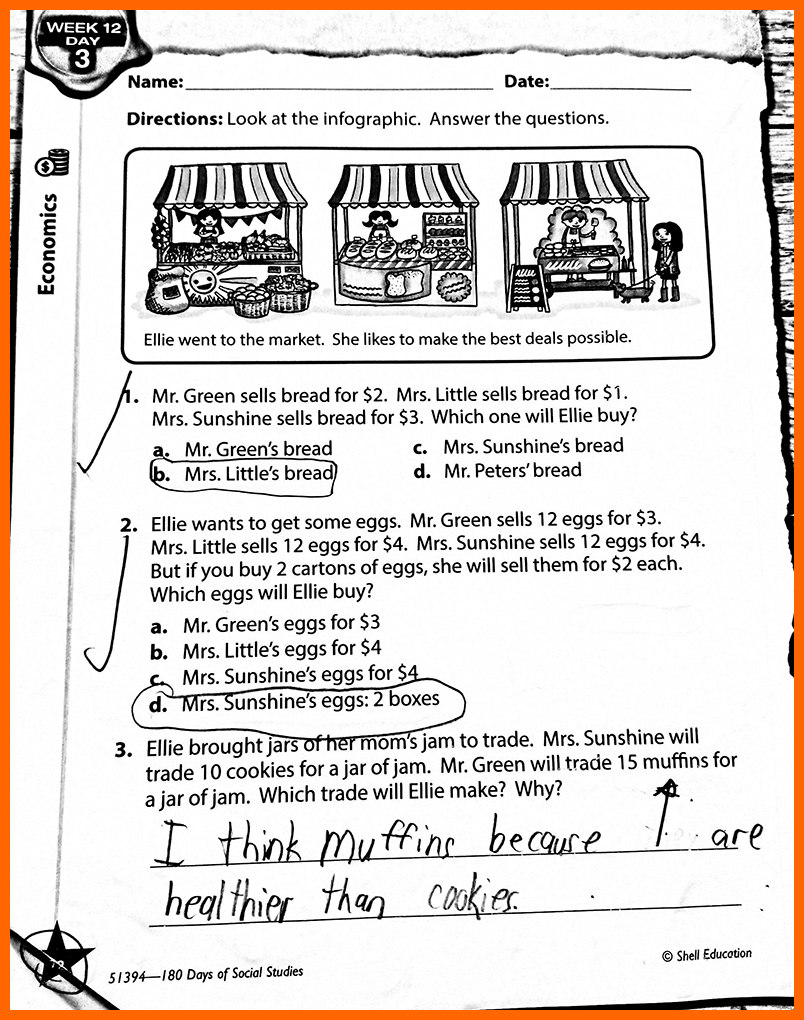 WEEK 12
DAY
3
Name: Date:
Directions: Look at the infographic. Answer the questions.
Economics
Ellie went to the market. She likes to make the best deals possible.
1. Mr. Green sells bread for $2. Mrs. Little sells bread for $1.
Mrs. Sunshine sells bread for $3. Which one will Ellie buy?
a. Mr. Green's bread
b. Mrs. Little's bread
c. Mrs. Sunshine's bread
d. Mr. Peters' bread
2. Ellie wants to get some eggs. Mr. Green sells 12 eggs for $3.
Mrs. Little sells 12 eggs for $4. Mrs. Sunshine sells 12 eggs for $4.
But if you buy 2 cartons of eggs, she will sell them for $2 each.
Which eggs will Ellie buy?
a. Mr. Green's eggs for $3
b. Mrs. Little's eggs for $4
c. Mrs. Sunshine's eggs for $4
d. Mrs. Sunshine's eggs: 2 boxes
3. Ellie brought jars of her mom's jam to trade. Mrs. Sunshine will
trade 10 cookies for a jar of jam. Mr. Green will trade 15 muffins for
a jar of jam. Which trade will Ellie make? Why?
I think muffins because are
healthier than cookies.
51394—180 Days of Social Studies
© Shell Education